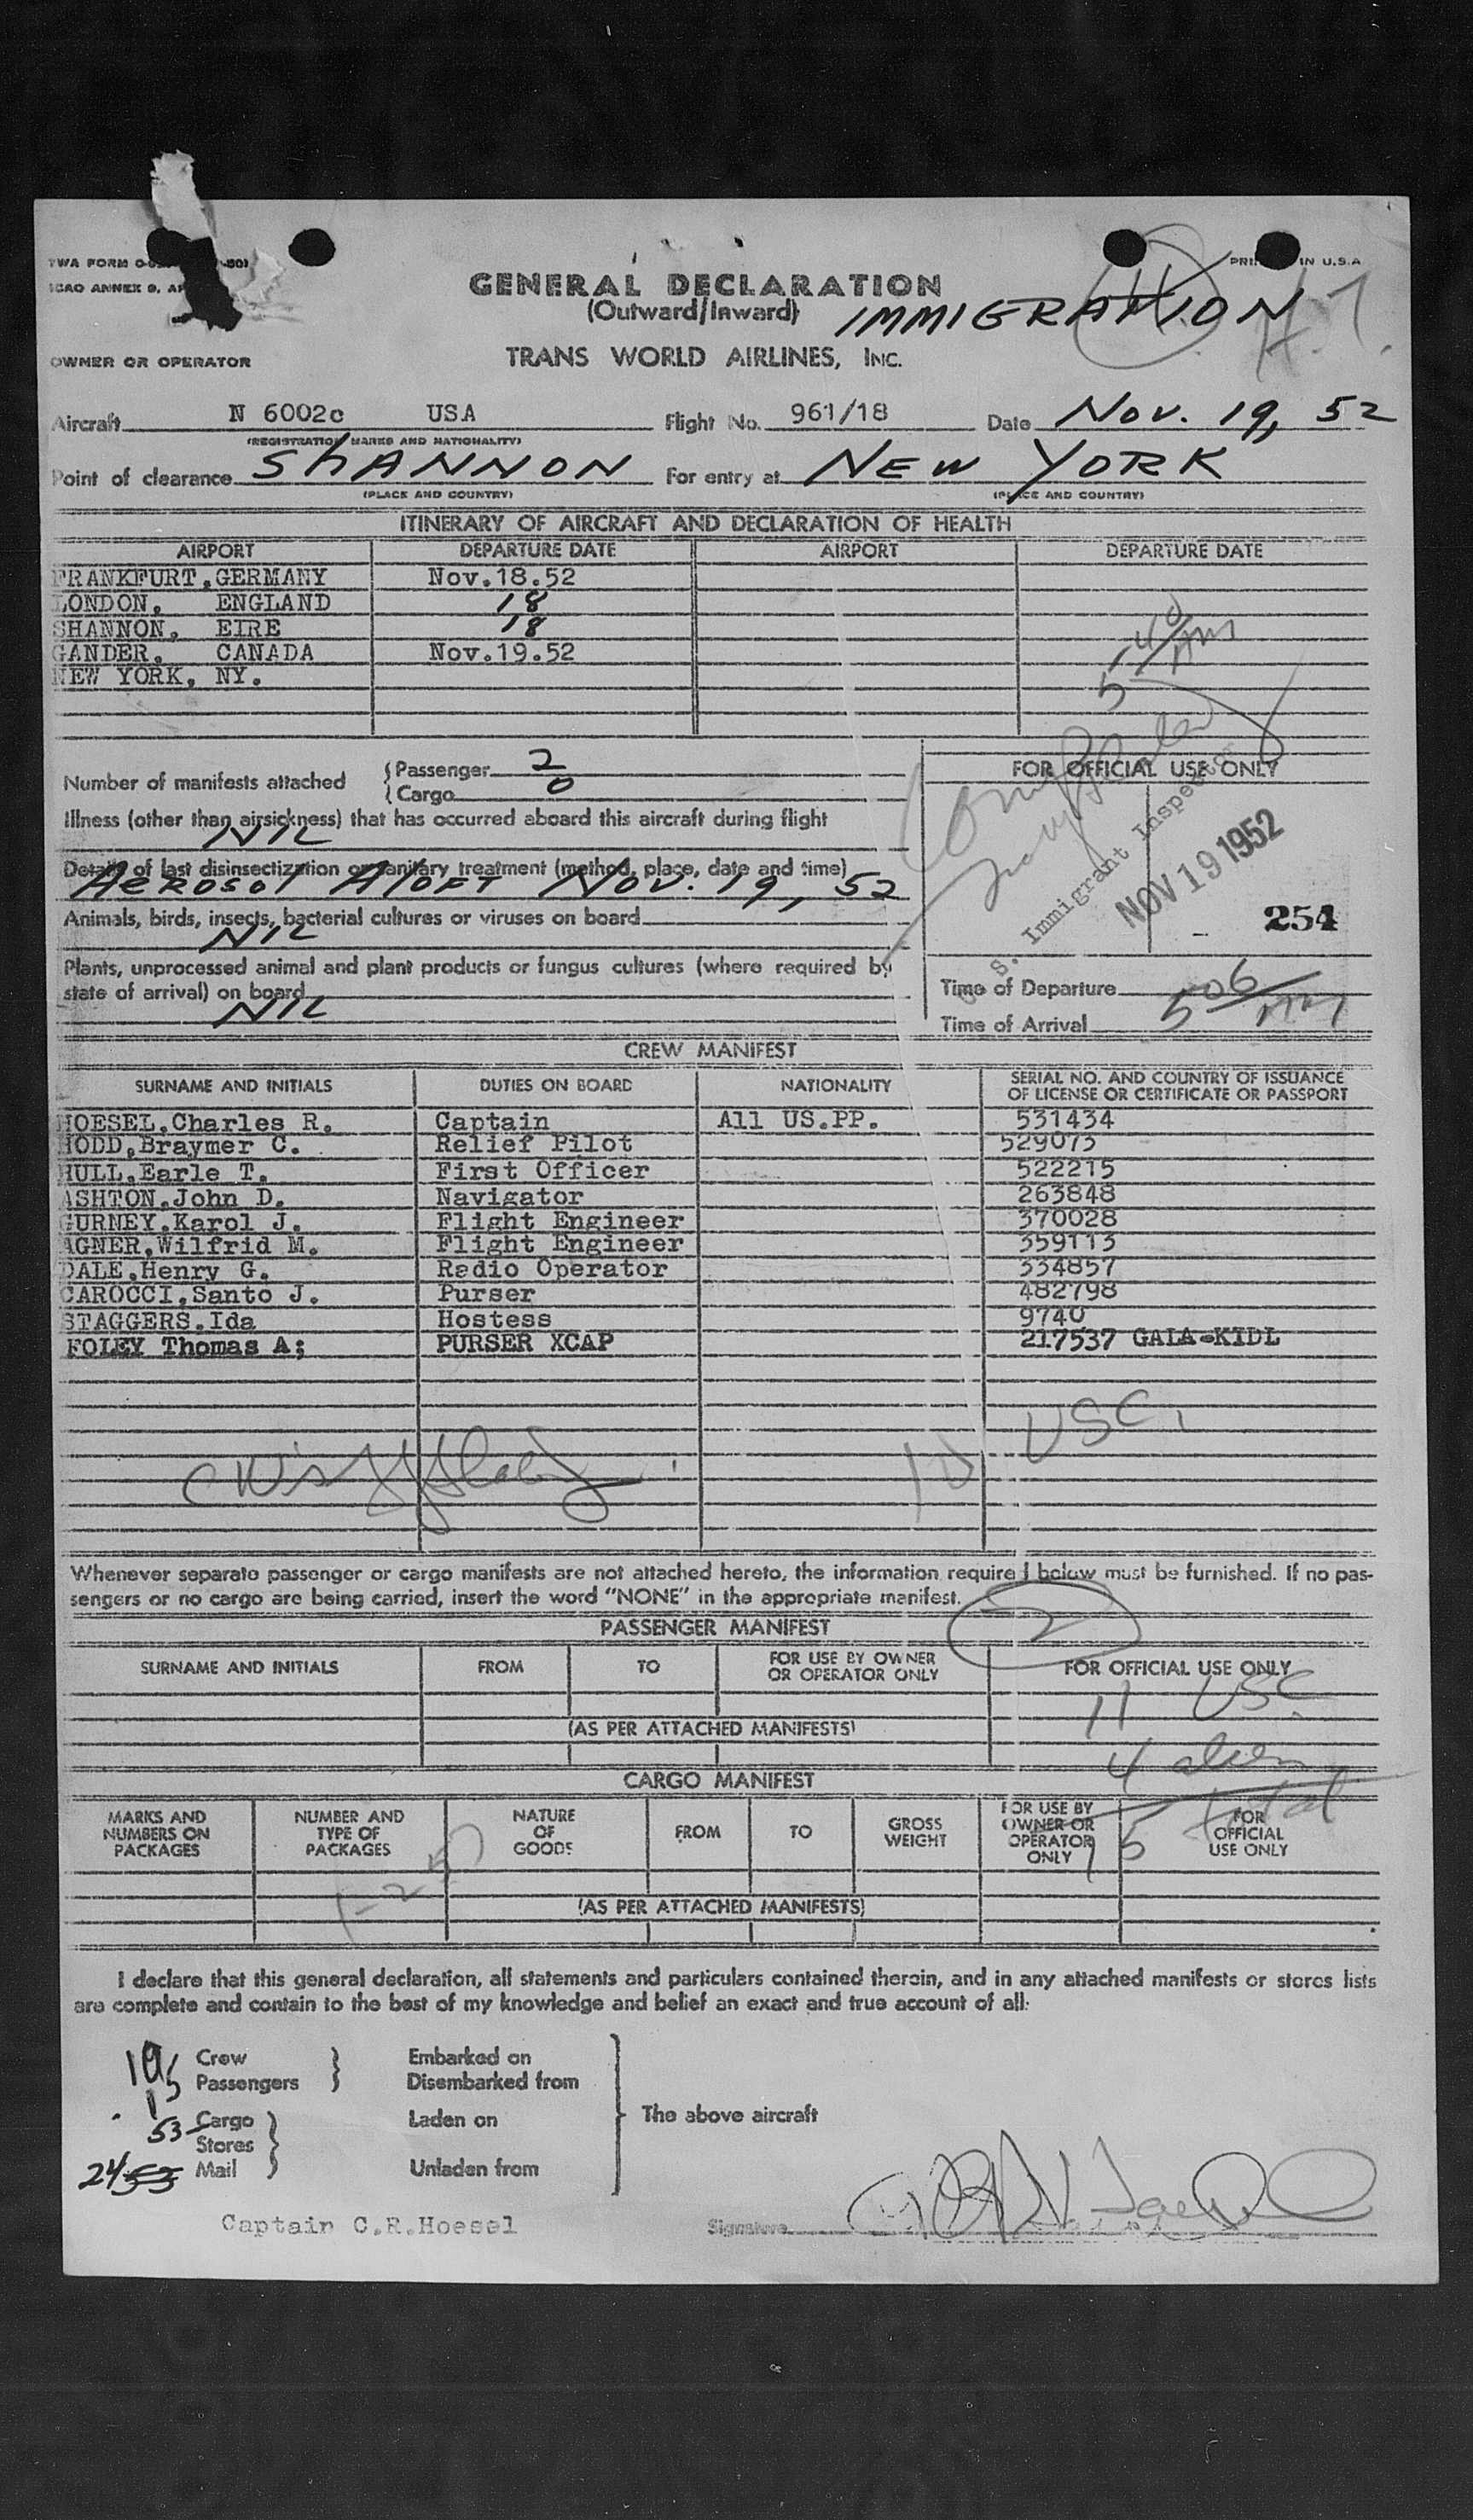 TWA FORM
PRI IN U.S.A.
ICAO ANNEX 9, A
GENERAL DECLARATION
(Outward/Inward) IMMIGRATION
OWNER OR OPERATOR TRANS WORLD AIRLINES, INC.
Aircraft N 6002c USA Flight No. 961/18 Date Nov. 19, 52
(REGISTRATION MARKS AND NATIONALITY)
Point of clearance SHANNON For entry at NEW YORK
(PLACE AND COUNTRY) (PLACE AND COUNTRY)
ITINERARY OF AIRCRAFT AND DECLARATION OF HEALTH
AIRPORT DEPARTURE DATE AIRPORT DEPARTURE DATE
FRANKFURT,GERMANY Nov.18.52
LONDON, ENGLAND 18
SHANNON, EIRE 18
GANDER, CANADA Nov.19.52
NEW YORK, NY.
5 40 AM
Number of manifests attached
Passenger 2
Cargo 0
FOR OFFICIAL USE ONLY
Illness (other than airsickness) that has occurred aboard this aircraft during flight
NIL
Details of last disinsectization or sanitary treatment (method, place, date and time)
AEROSOL ALOFT NOV. 19, 52
Immigrant Inspector
NOV 19 1952
254
Animals, birds, insects, bacterial cultures or viruses on board
NIL
Plants, unprocessed animal and plant products or fungus cultures (where required by
state of arrival) on board
NIL
Time of Departure
Time of Arrival 5 06 AM
CREW MANIFEST
SURNAME AND INITIALS DUTIES ON BOARD NATIONALITY SERIAL NO. AND COUNTRY OF ISSUANCE
OF LICENSE OR CERTIFICATE OR PASSPORT
HOESEL,Charles R. Captain All US.PP. 531434
HODD,Braymer C. Relief Pilot 529073
HULL,Earle T. First Officer 522215
ASHTON,John D. Navigator 263848
GURNEY,Karol J. Flight Engineer 370028
AGNER,Wilfrid M. Flight Engineer 359113
DALE,Henry G. Radio Operator 334857
CAROCCI,Santo J. Purser 482798
STAGGERS,Ida Hostess 9740
FOLEY Thomas A; PURSER XCAP 217537 GALA-KIDL
10 USC.
Whenever separate passenger or cargo manifests are not attached hereto, the information required below must be furnished. If no pas-
sengers or no cargo are being carried, insert the word "NONE" in the appropriate manifest.
2
PASSENGER MANIFEST
SURNAME AND INITIALS FROM TO FOR USE BY OWNER
OR OPERATOR ONLY FOR OFFICIAL USE ONLY
11 USC.
(AS PER ATTACHED MANIFESTS)
4 alien
15 total
CARGO MANIFEST
MARKS AND
NUMBERS ON
PACKAGES
NUMBER AND
TYPE OF
PACKAGES
NATURE
OF
GOODS
FROM
TO
GROSS
WEIGHT
FOR USE BY
OWNER OR
OPERATOR
ONLY
FOR
OFFICIAL
USE ONLY
(AS PER ATTACHED MANIFESTS)
I declare that this general declaration, all statements and particulars contained therein, and in any attached manifests or stores lists
are complete and contain to the best of my knowledge and belief an exact and true account of all:
Crew Embarked on
15 Passengers Disembarked from
53 Cargo Laden on The above aircraft
Stores
24 Mail Unladen from
Captain C.R.Hoesel Signature